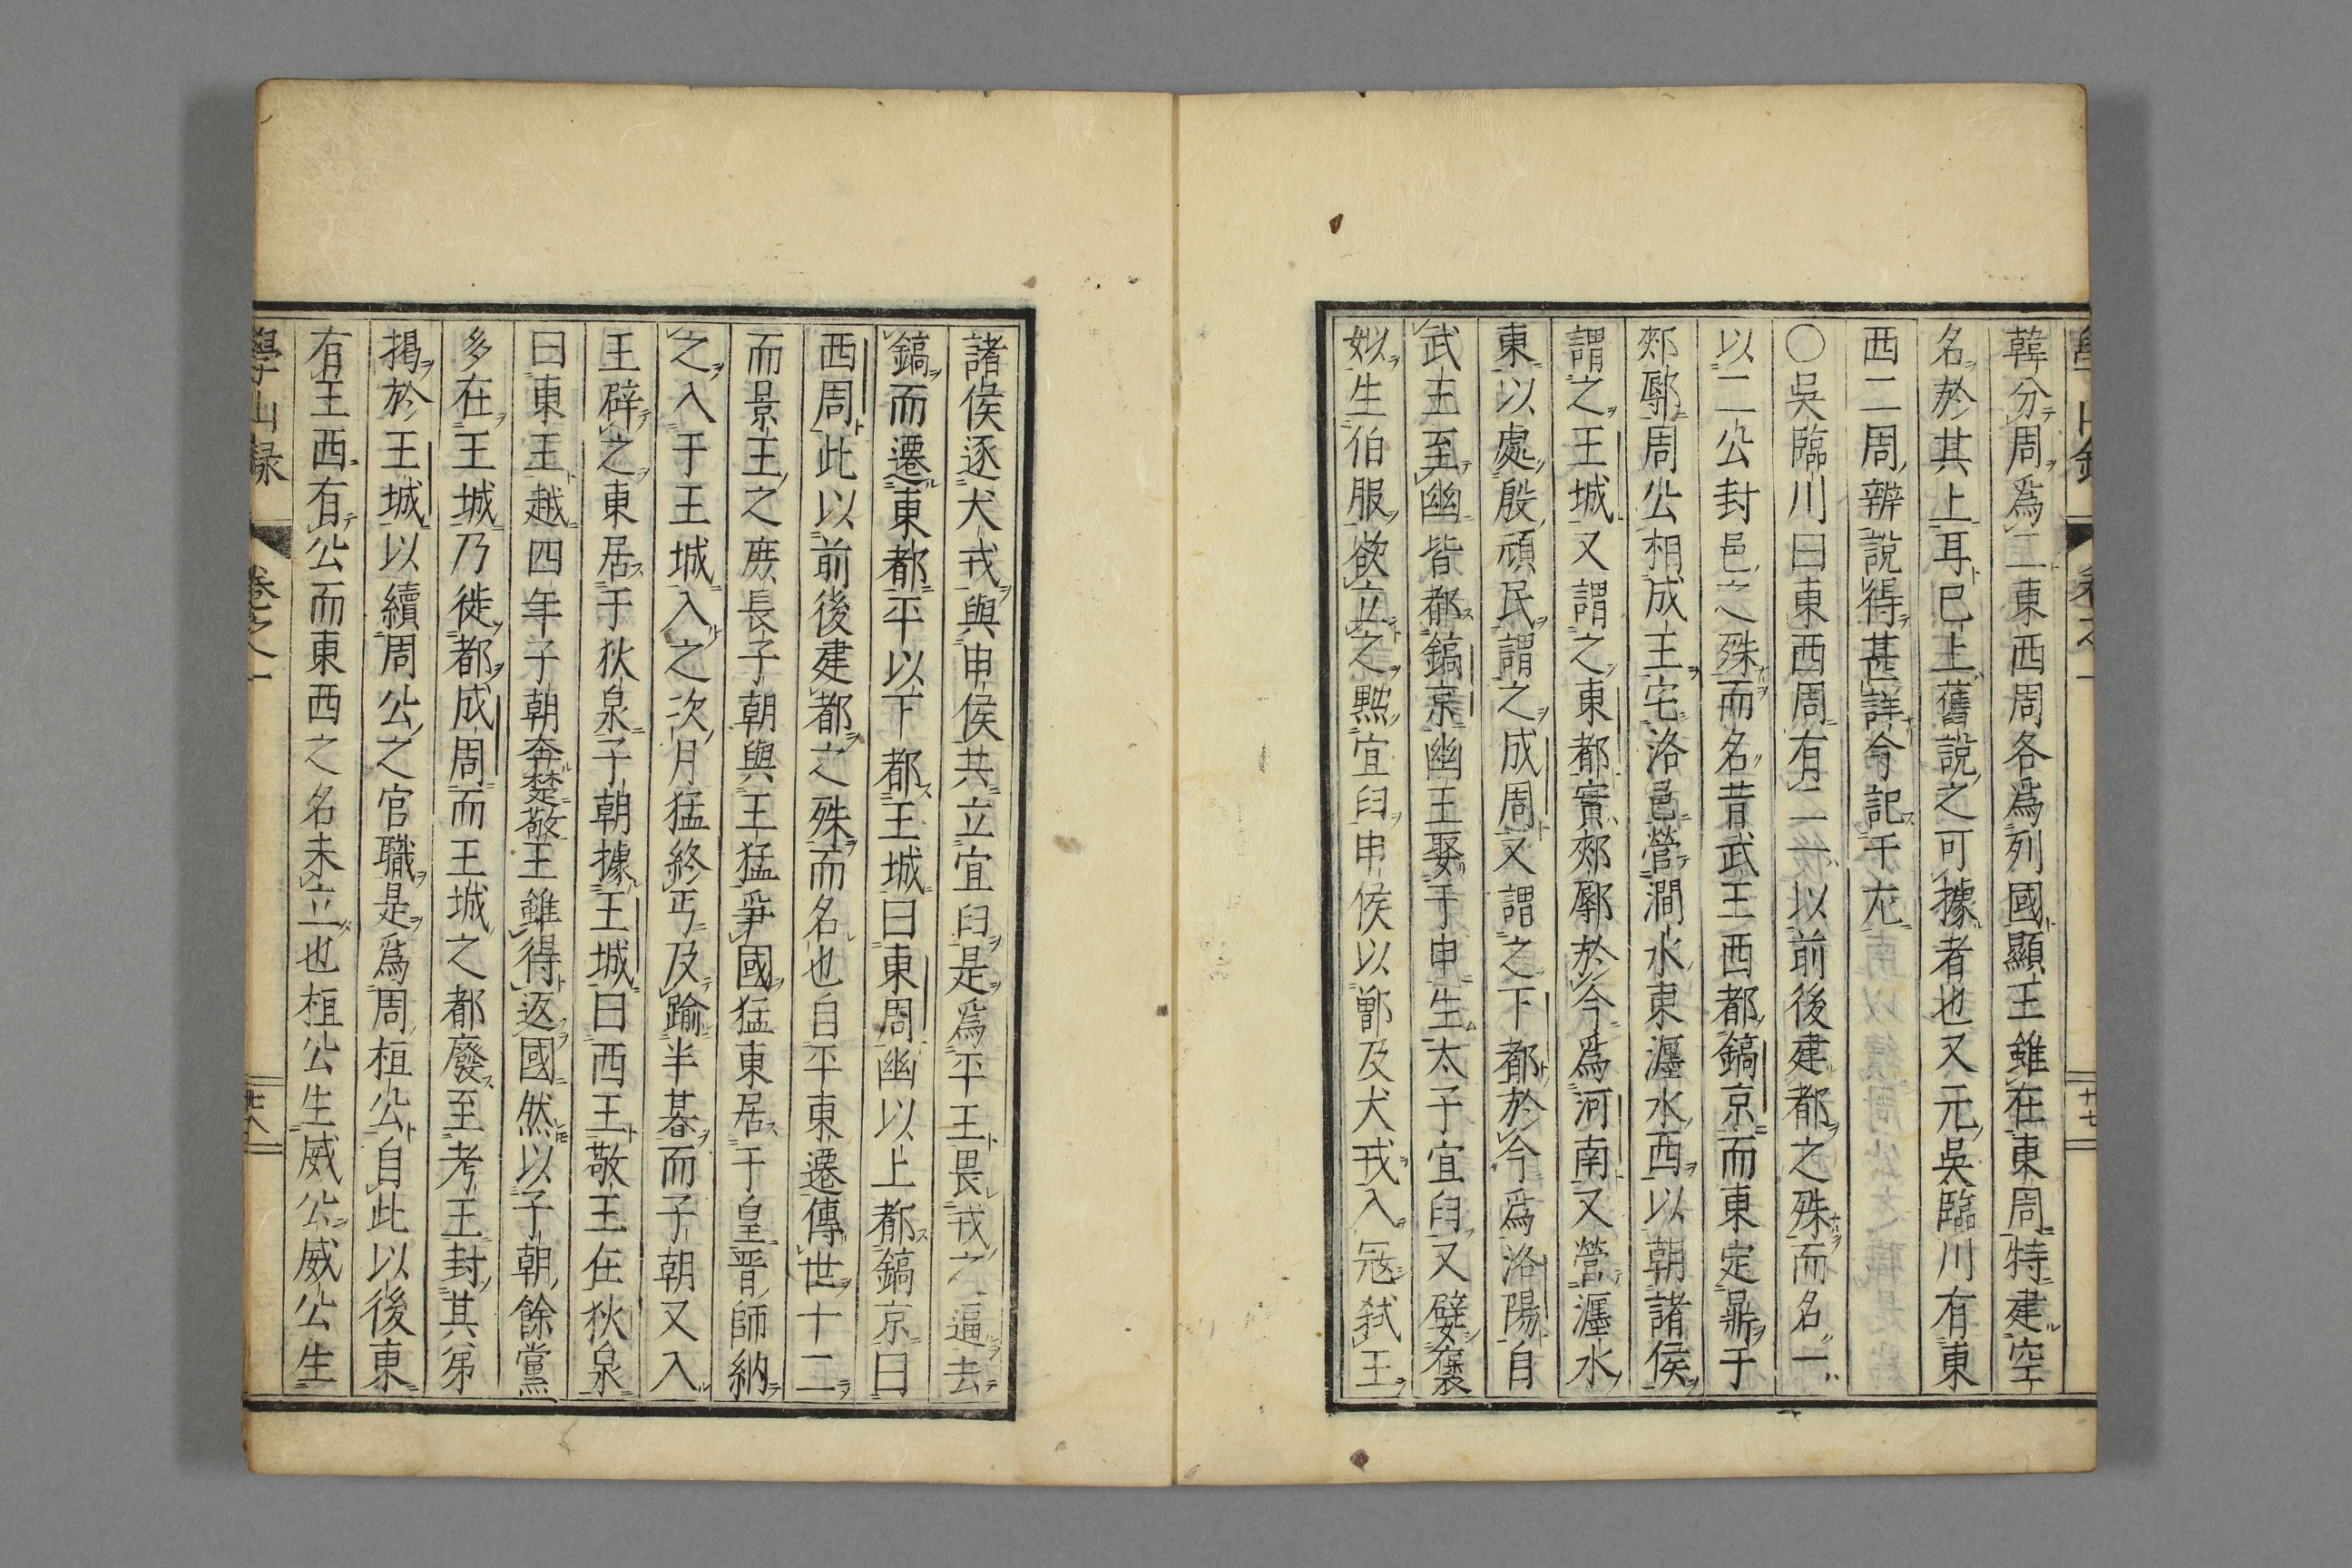 韓分周爲二東西周各爲列國顯王雖在東周特建空
名於其上耳已上舊說之可據者也又元吳臨川有東
西二周辨說得甚詳今記于左
○吳臨川曰東西周有二一以前後建都之殊而名一
以二公封邑之殊而名昔武王西都鎬京而東定鼎于
郟鄏周公相成王宅洛邑營澗水東瀍水西以朝諸侯
謂之王城又謂之東都實郟鄏於今爲河南又營瀍水
東以處殷頑民謂之成周又謂之下都於今爲洛陽自
武王至幽皆都鎬京幽王娶于申生太子宜臼又嬖褒
姒生伯服欲立之黜宜臼申侯以鄫及犬戎入寇弒王
諸侯逐犬戎與申侯共立宜臼是爲平王畏戎之逼去
鎬而遷東都平以下都王城曰東周幽以上都鎬京曰
西周此以前後建都之殊而名也自平東遷傳世十二
而景王之庶長子朝與王猛爭國猛東居于皇晋師納
之入于王城入之次月猛終丐及踰半朞而子朝又入
王辟之東居于狄泉子朝據王城曰西王敬王在狄泉
曰東王越四年子朝奔楚敬王雖得返國然以子朝餘黨
多在王城乃徙都成周而王城之都廢至考王封其弟
揭於王城以續周公之官職是爲周桓公自此以後東
有王西有公而東西之名未立也桓公生威公威公生
學山録 卷之一